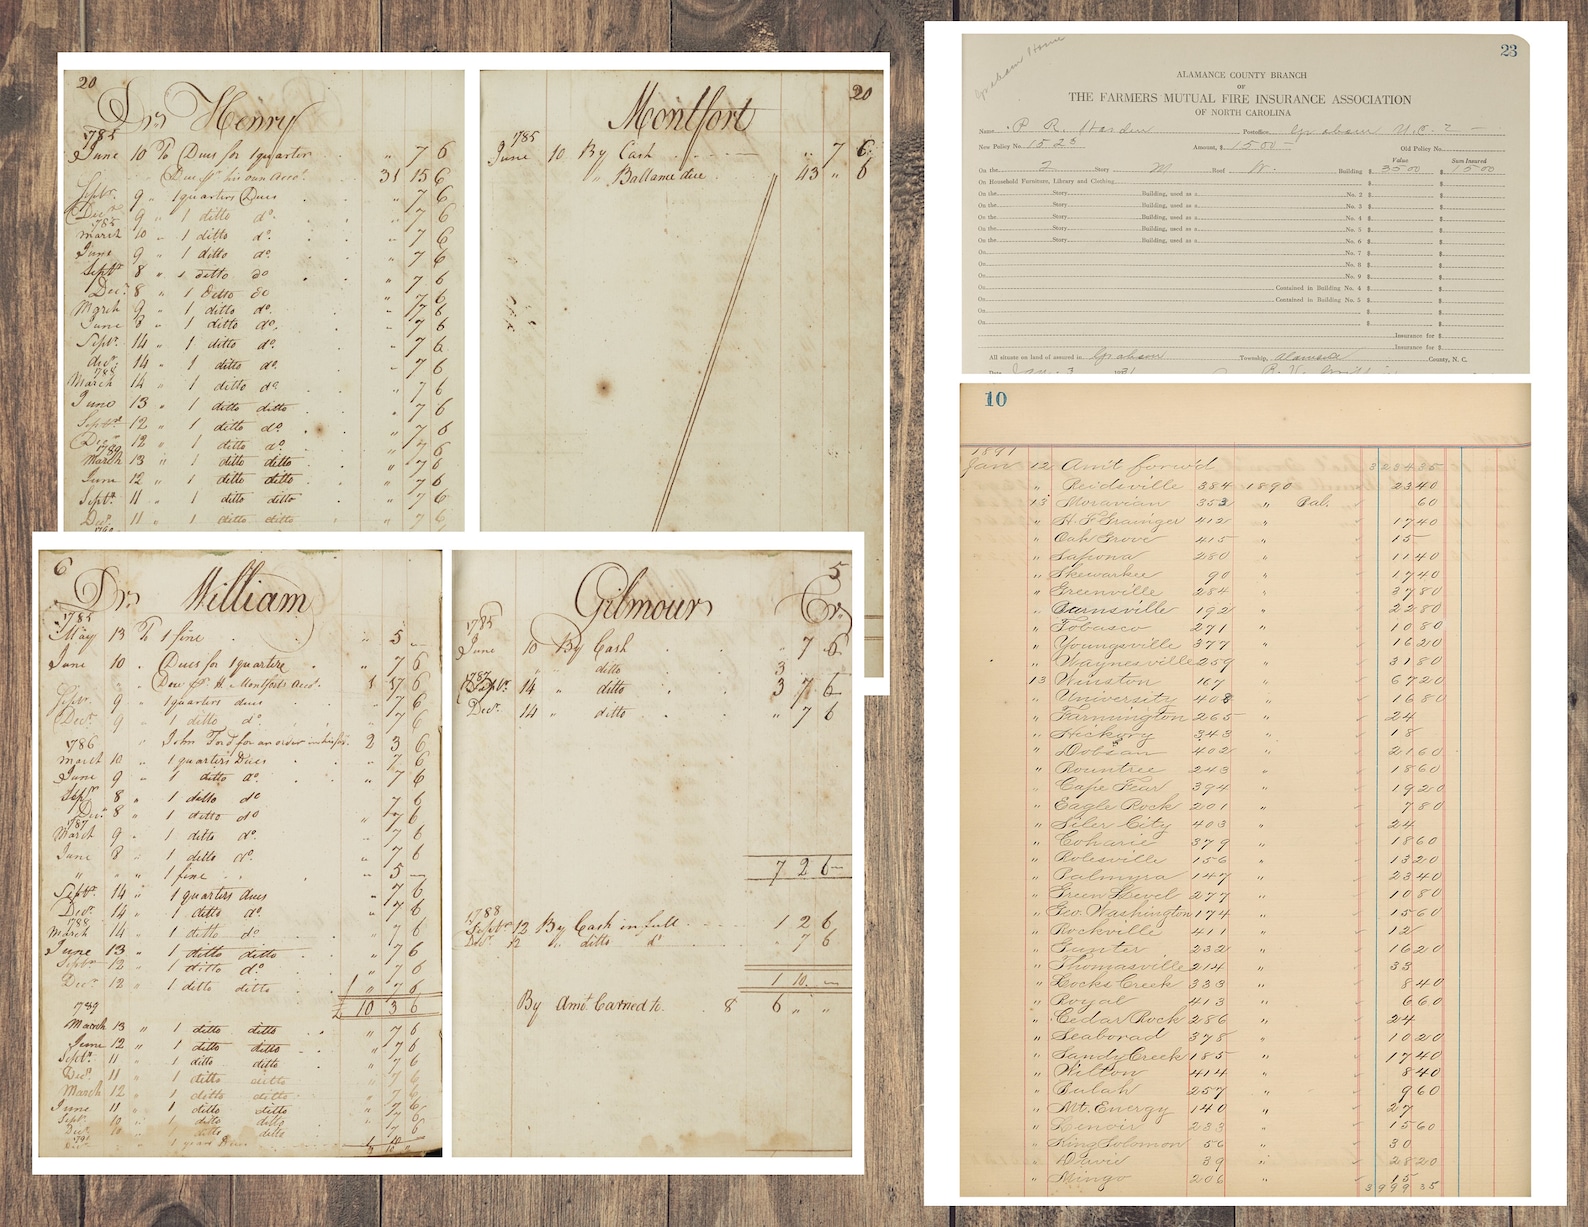 20
Dr. Henry
1785
June 10 To Dues for 1 quarter " 7 6
Due pr. his own Acct. 31 15 6
Septr. 9 " 1 quarters Dues " 7 6
Decr. 9 " 1 ditto do. " 7 6
March 10 " 1 ditto do. " 7 6
June 9 " 1 ditto do. " 7 6
Septr. 8 " 1 ditto do " 7 6
Decr. 8 " 1 ditto do " 7 6
March 9 " 1 ditto do. " 7 6
June 8 " 1 ditto do. " 7 6
Septr. 14 " 1 ditto do. " 7 6
decr. 14 " 1 ditto do. " 7 6
1788
March 14 " 1 ditto do " 7 6
June 13 " 1 ditto ditto " 7 6
Septr. 12 " 1 ditto do. " 7 6
Decr. 12 " 1 ditto do. " 7 6
1789
March 13 " 1 ditto ditto " 7 6
June 12 " 1 ditto ditto " 7 6
Septr. 11 " 1 ditto ditto " 7 6
Decr. 11 " 1 ditto ditto " 7 6
20
Montfort
1785
June 10 By Cash " 7 6
" Ballance due 43 " 6
6
Dr. William
1785
May 13 To 1 fine " 5 –
June 10 " Dues for 1 quarter " 7 6
" " Due pr. H. Montforts Acct. 1 17 6
Septr. 9 " 1 quarters dues " 7 6
Decr. 9 " 1 ditto do. " 7 6
1786 " John Ford for an order 2 3 6
March 10 " 1 quarters Dues " 7 6
June 9 " 1 ditto do. " 7 6
Septr. 8 " 1 ditto do " 7 6
Decr. 8 " 1 ditto do " 7 6
1787
March 9 " 1 ditto do. " 7 6
June 8 " 1 ditto do. " 7 6
" " " 1 fine " 5 –
Septr. 14 " 1 quarters dues " 7 6
Decr. 14 " 1 ditto do. " 7 6
1788
March 14 " 1 ditto do " 7 6
June 13 " 1 ditto ditto " 7 6
Septr. 12 " 1 ditto do. " 7 6
Decr. 12 " 1 ditto ditto " 7 6
£ 10 3 6
1789
March 13 " 1 ditto ditto " 7 6
June 12 " 1 ditto ditto " 7 6
Septr. 11 " 1 ditto ditto " 7 6
Decr. 11 " 1 ditto ditto " 7 6
March 12 " 1 ditto ditto " 7 6
June 11 " 1 ditto ditto " 7 6
Septr. 10 " 1 ditto ditto " 7 6
Decr. 10 " 1 ditto ditto " 7 6
1791
" 1 years Dues 1 10
5
Gilmour Cr.
1785
June 10 By Cash " 7 6
" " ditto 3
1787
Septr. 14 " ditto 3 7 6
Decr. 14 " ditto " 7 6
7 2 6
1788
Septr. 12 By Cash in full 1 2 6
Decr. 12 " ditto do " 7 6
1 10 –
By Amt. Carried to 8 6 " "
Graham Home
23
ALAMANCE COUNTY BRANCH
OF
THE FARMERS MUTUAL FIRE INSURANCE ASSOCIATION
OF NORTH CAROLINA
Name P. R. Harden Postoffice, Graham N.C. 2
New Policy No. 1523 Amount, $ 1500 Old Policy No.
Value Sum Insured
On the 2 Story M Roof W. Building $ 3500 $ 1500
On Household Furniture, Library and Clothing $ $
On the Story Building, used as a No. 2 $ $
On the Story Building, used as a No. 3 $ $
On the Story Building, used as a No. 4 $ $
On the Story Building, used as a No. 5 $ $
On the Story Building, used as a No. 6 $ $
On No. 7 $ $
On No. 8 $ $
On No. 9 $ $
On Contained in Building No. 4 $ $
On Contained in Building No. 5 $ $
On $ $
On $ $
Insurance for $
Insurance for $
All situate on land of assured in Graham Township, Alamance County, N. C.
Date Jan. 3 1931
10
1891
Jan 12 Am't forw'd 3234 35
" Reidsville 384 1890 23 40
13 Moravian 353 " Bal. 60
" H. F. Grainger 412 " 17 40
" Oak Grove 415 " 15
" Sapona 280 " 11 40
" Skewarkee 90 " 17 40
" Greenville 284 " 37 80
" Burnsville 192 " 22 80
" Tobasco 271 " 10 80
" Youngsville 377 " 16 20
" Waynesville 259 " 31 80
13 Winston 167 " 67 20
" University 408 " 16 80
" Farmington 265 " 24
" Hickory 343 " 18
" Dobson 402 " 21 60
" Rountree 243 " 18 60
" Cape Fear 394 " 19 20
" Eagle Rock 201 " 7 80
" Siler City 403 " 24
" Coharie 379 " 18 60
" Rolesville 156 " 13 20
" Palmyra 147 " 23 40
" Green Level 277 " 10 80
" Geo. Washington 174 " 15 60
" Rockville 411 " 12
" Gunter 232 " 16 20
" Thomasville 214 " 33
" Locks Creek 333 " 8 40
" Royal 413 " 6 60
" Cedar Rock 286 " 24
" Seaborad 378 " 10 20
" Sandy Creek 185 " 17 40
" Wilton 414 " 8 40
" Bulah 257 " 9 60
" Mt. Energy 140 " 27
" Lenoir 233 " 15 60
" King Solomon 56 " 30
" Davie 39 " 28 20
" Mingo 206 " 15
3999 35